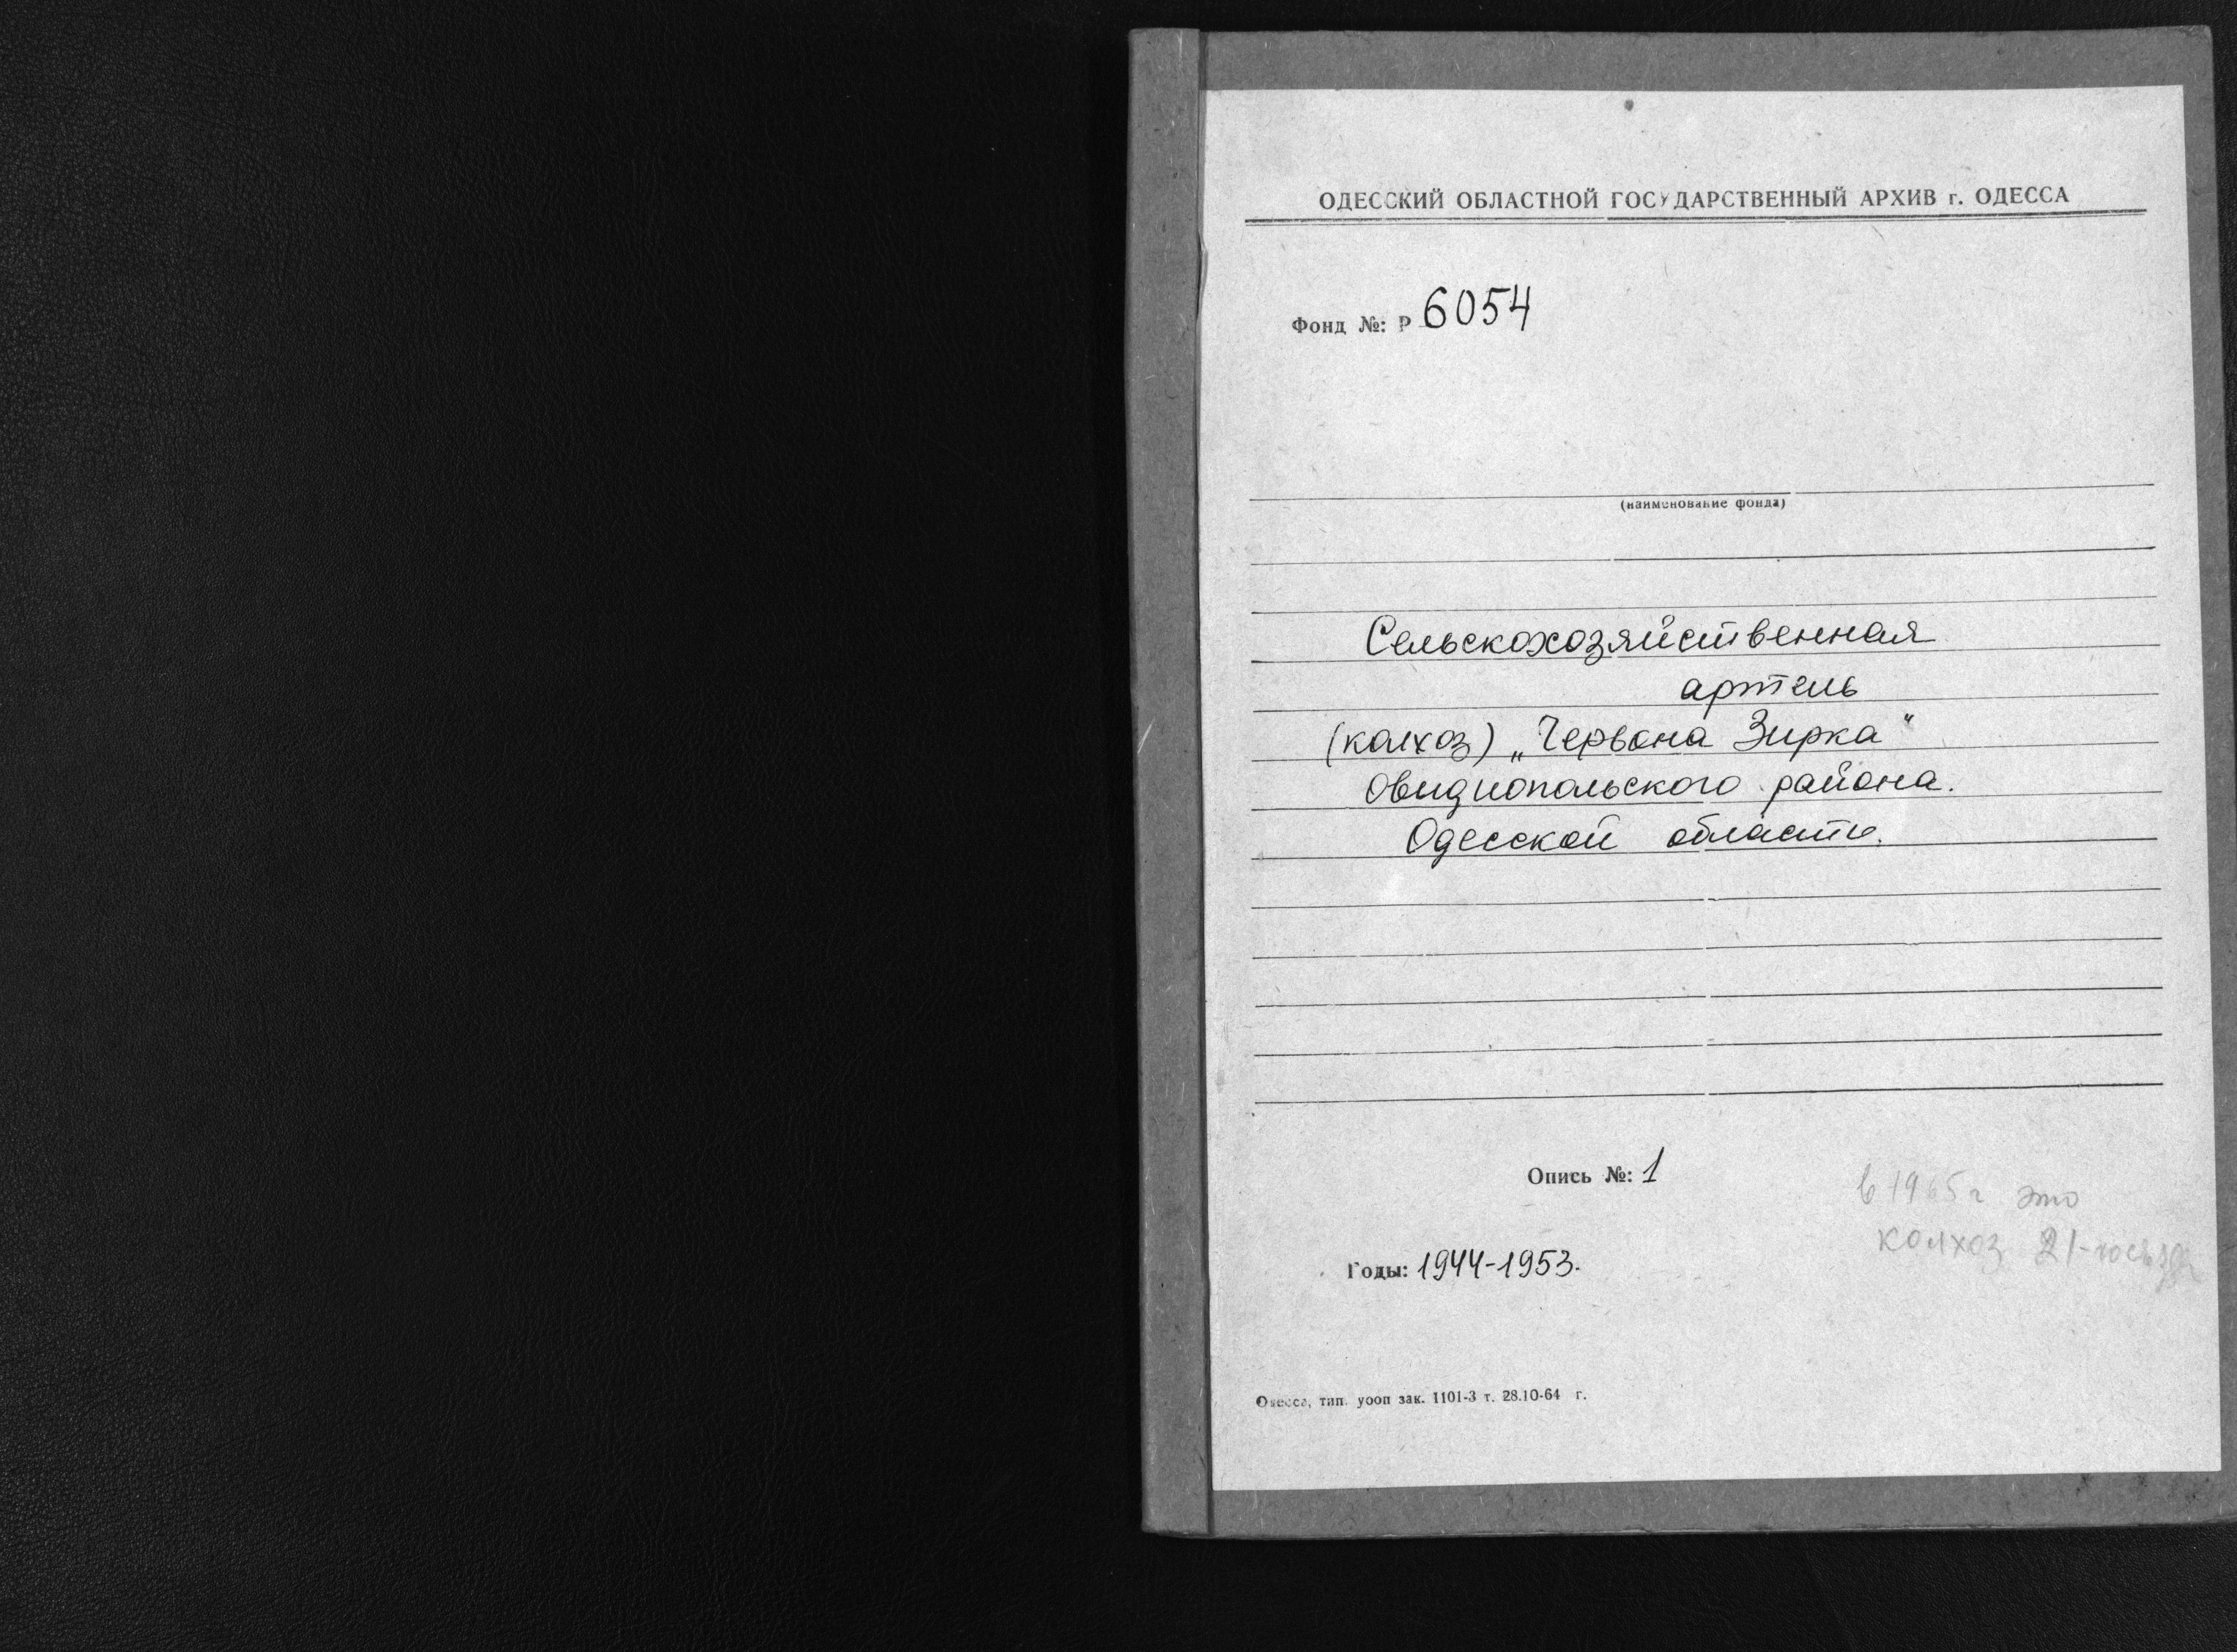 ОДЕССКИЙ ОБЛАСТНОЙ ГОСУДАРСТВЕННЫЙ АРХИВ г. ОДЕССА
Фонд №: Р 6054
(наименование фонда)
Сельскохозяйственная
артель
(колхоз) „Червона Зирка"
Овидиопольского района.
Одесской области.
Опись №: 1
в 1965 г это
колхоз 21-
Годы: 1944-1953.
Одесса, тип. уооп зак. 1101-3 т. 28.10-64 г.